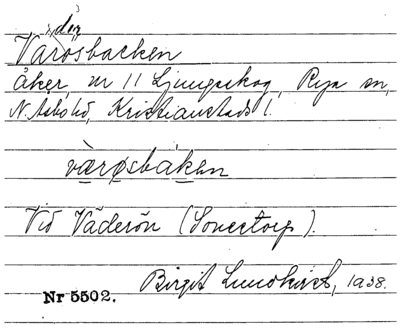 i, den
Varosbacken
Åker, nr 11 Ljungaskog, Rya sn,
N. Åsbo hd, Kristianstads l.
värøsbakən
Vid Väderön (Sonestorp).
Birgit Lundkvist, 1938.
Nr 5502.